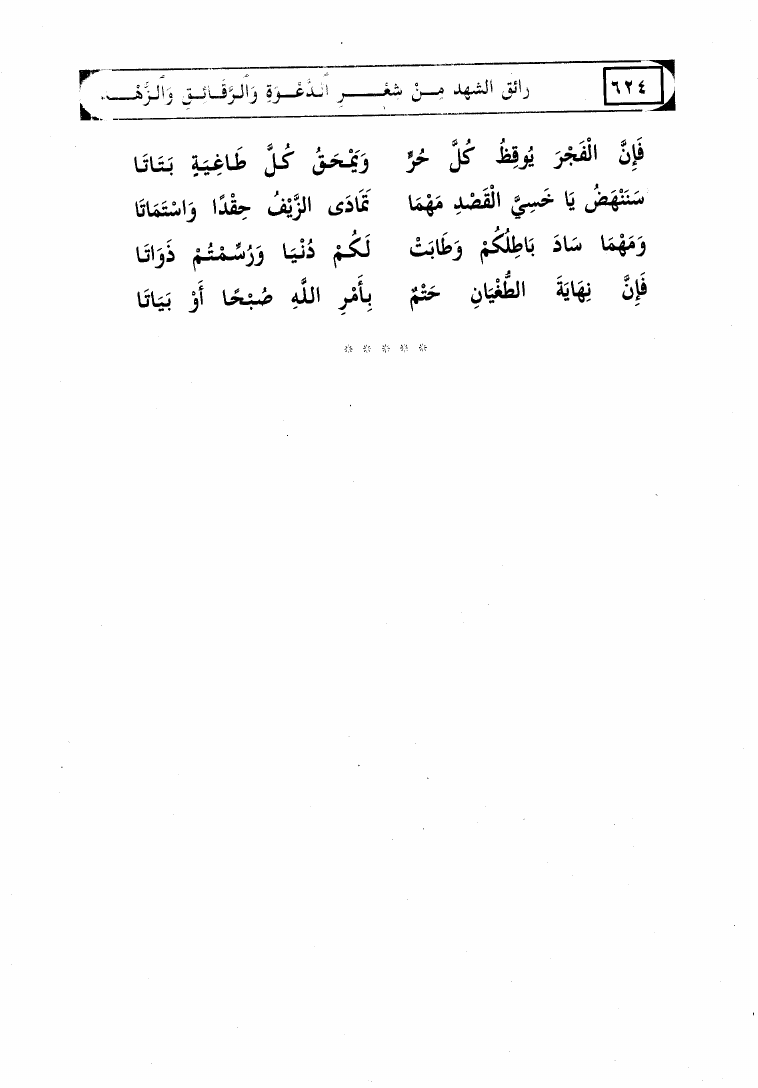 ٦٢٤ رائق الشهد مِنْ شعْرِ الدَّعْوَةِ وَالرَّقَائِقِ وَالزُّهْد
فَإِنَّ الْفَجْرَ يُوقِظُ كُلَّ حُرٍّ وَيَمْحَقُ كُلَّ طَاغِيَةٍ بَتَاتَا
سَنَنْهَضُ يَا خَسِيَّ الْقَصْدِ مَهْمَا تَمَادَى الزَّيْفُ حِقْدًا وَاسْتَمَاتَا
وَمَهْمَا سَادَ بَاطِلُكُمْ وَطَابَتْ لَكُمْ دُنْيَا وَرُسِّمْتُمْ ذَوَاتَا
فَإِنَّ نِهَايَةَ الطُّغْيَانِ حَتْمٌ بِأَمْرِ اللَّهِ صُبْحًا أَوْ بَيَاتَا
*****